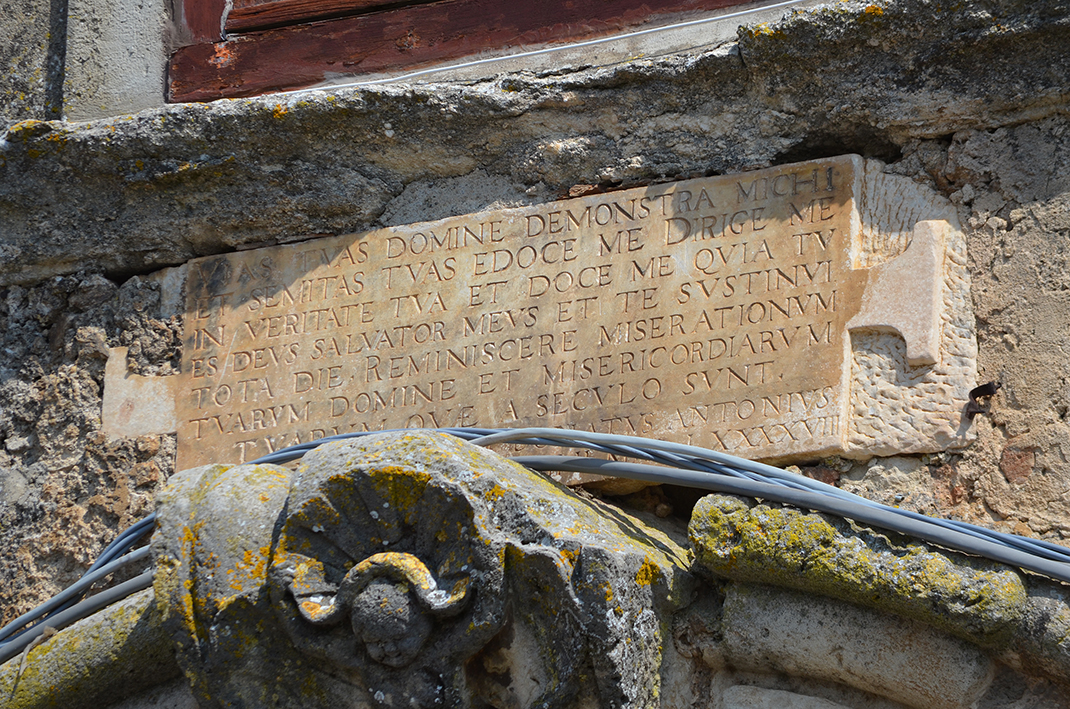 VIAS TVAS DOMINE DEMONSTRA MICHI
ET SEMITAS TVAS EDOCE ME DIRIGE ME
IN VERITATE TVA ET DOCE ME QVIA TV
ES DEVS SALVATOR MEVS ET TE SVSTINVI
TOTA DIE REMINISCERE MISERATIONVM
TVARVM DOMINE ET MISERICORDIARVM
TVARVM QVE A SECVLO SVNT
ANTONIVS
LXXXXVIII